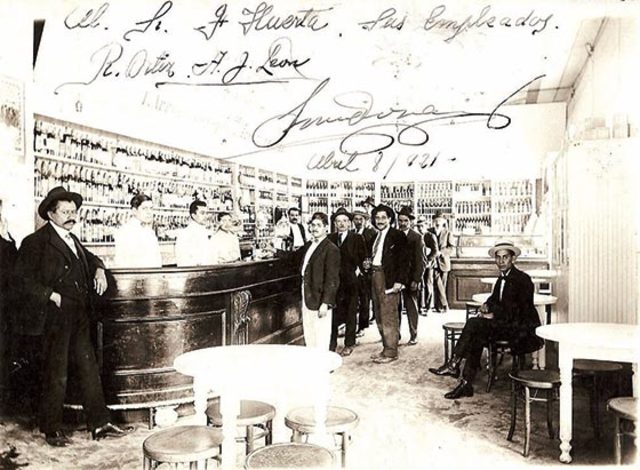 Al Sr. F Huerta. Sus Empleados.
R. Ortiz. A. J. Leon
Abril 8/921-